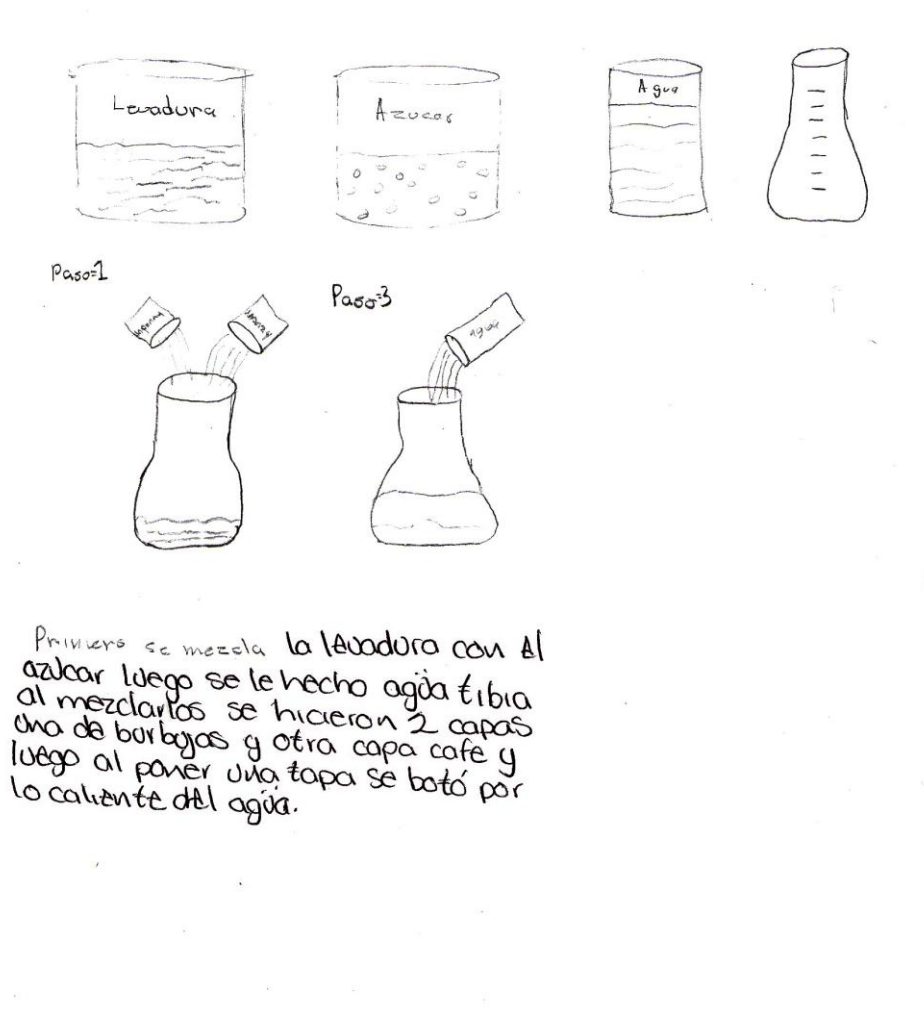 Levadura
Azucar
Agua
Paso=1
Paso=3
Agua
Primero se mezcla la levadura con el
azucar luego se le hecho agüa tibia
al mezclarlos se hicieron 2 capas
una de burbujas y otra capa cafe y
luego al poner una tapa se botó por
lo caliente del agüa.